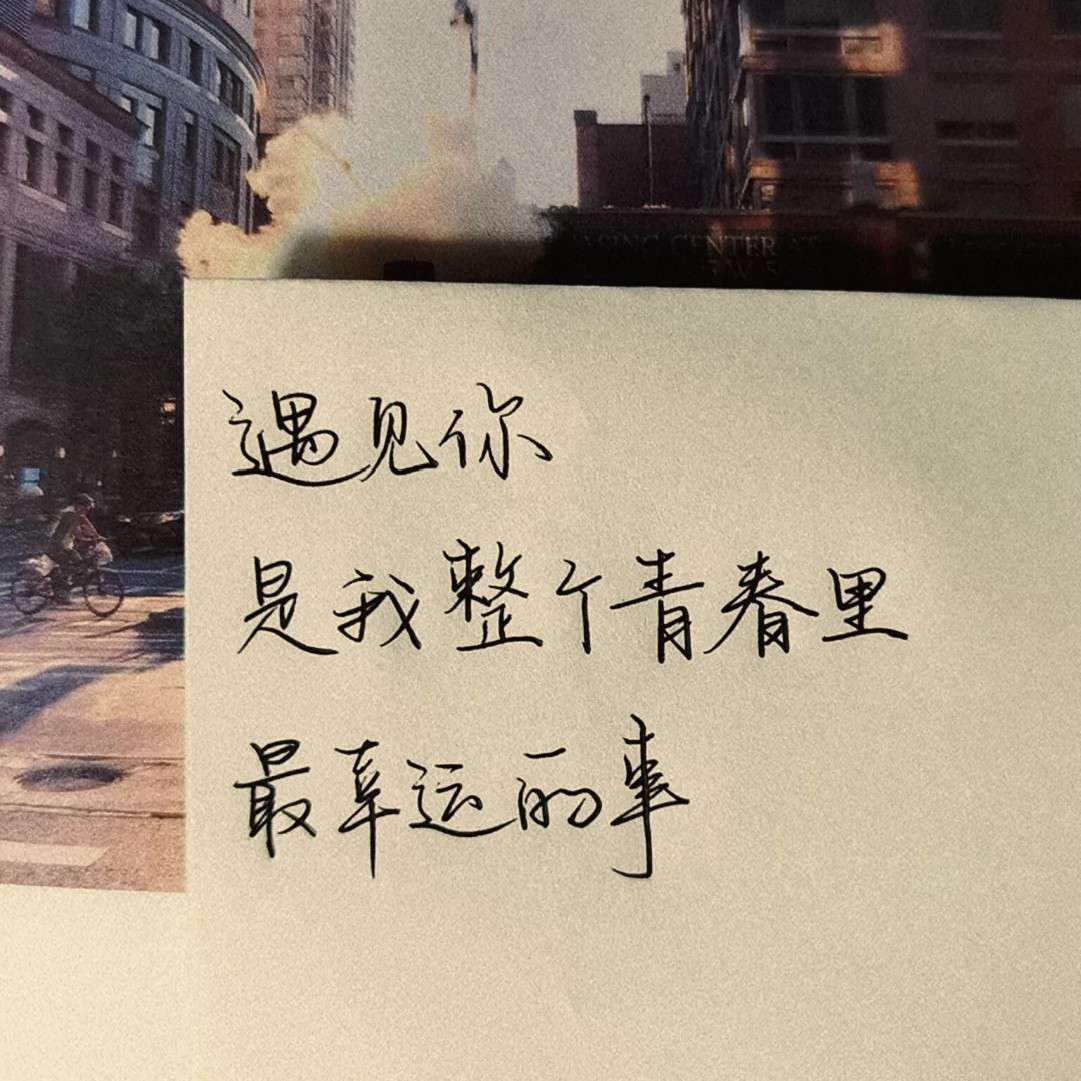 ASING CENTER AT
遇见你
是我整个青春里
最幸运的事